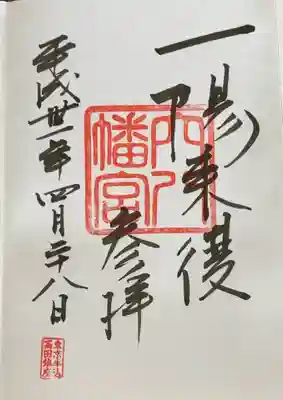 一陽來復
参拝
平成卅一年四月二十八日
穴八
幡宮